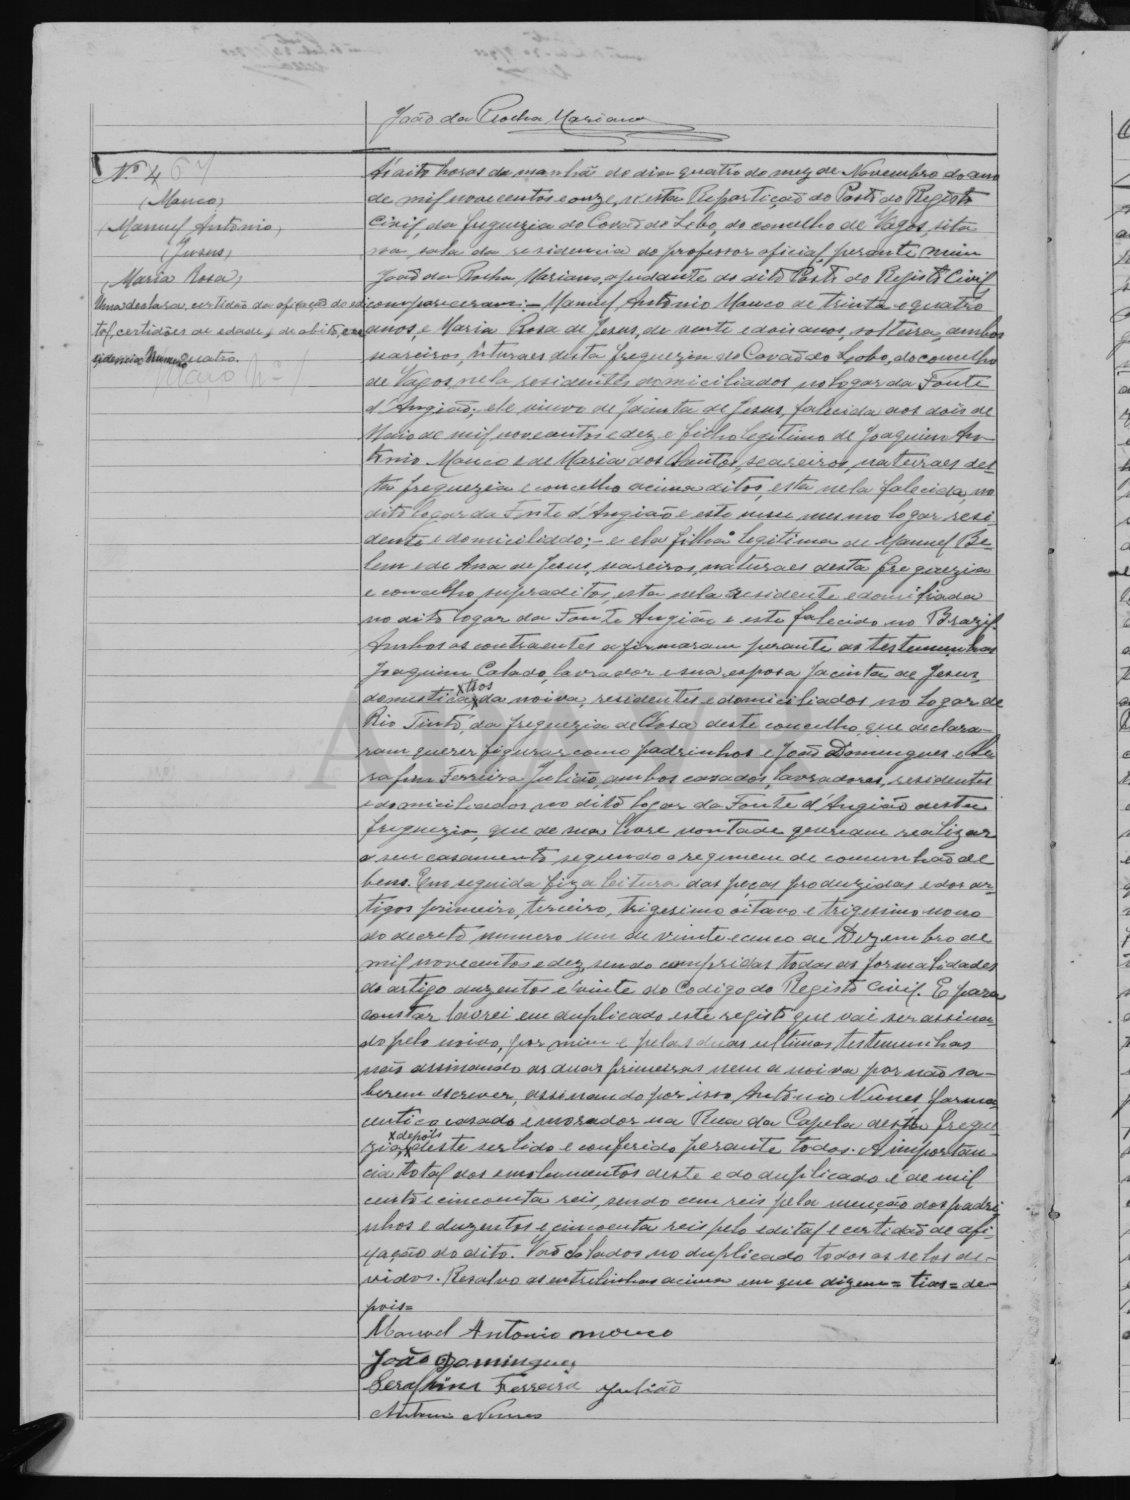 João da Rocha Mariano
N.º 4 67
(Mouco)
Manuel Antonio,
(Jesus)
Maria Rosa,
Uma declaração, certidão da afixação do edi-
tal, certidões de edade, de obito, e re-
sidencia. Numero quatro.
Maço Nº 1
Ás oito horas da manhã do dia quatro do mez de Novembro do ano
de mil novecentos e onze, n'esta Repartição do Posto do Registo
Civil, da freguezia do Covão do Lobo, do concelho de Vagos, sita
na sala da residencia do professor oficial, perante mim
João da Rocha Mariano, ajudante do dito Posto do Registo Civil,
compareceram: — Manuel Antonio Mouco de trinta e quatro
anos, e Maria Rosa de Jesus, de vinte e dois anos, solteira, ambos
seareiros, naturaes desta freguezia do Covão do Lobo, do concelho
de Vagos, nela residentes domiciliados no logar da Fonte
d'Angião; ele viuvo de Jacinta de Jesus, falecida aos dois de
Maio de mil novecentos e dez, e filho legitimo de Joaquim An-
tonio Mouco e de Maria dos Santos, seareiros, naturaes des-
ta freguezia e concelho acima ditos, esta nela falecida, no
dito logar da Fonte d'Angião e este nesse mesmo logar resi-
dente e domiciliado; — e ela filha legitima de Manuel Be-
lem e de Ana de Jesus, seareiros, naturaes desta freguezia
e concelho supraditos, esta nela residente e domiliada
no dito logar da Fonte Angião e este falecido no Brazil.
Ambos os contraentes afirmaram perante as testemunhas
Joaquim Calado, lavrador e sua esposa Jacinta de Jesus,
x tios
domestica, x da noiva, residentes e domiciliados no logar de
Rio Tinto, da freguezia de Sosa deste concelho, que declara-
ram querer figurar como padrinhos e João Domingues e Se-
rafim Ferreira Julião, ambos casados, lavradores, residentes
e domiciliados, no dito logar da Fonte d'Angião desta
freguezia, que de sua livre vontade queriam realizar
o seu casamento, segundo o regimem de comunhão de
bens. Em seguida fiz a leitura das peças produzidas e dos ar-
tigos primeiro, terceiro, trigesimo oitavo e trigesimo nono
do decreto numero um de vinte e cinco de Dezembro de
mil novecentos e dez, sendo cumpridas todas as formalidades
do artigo duzentos e vinte do Codigo do Registo Civil. E para
constar lavrei em duplicado este registo que vai ser assina-
do pelo noivo, por mim e pelas duas ultimas testemunhas
não assinando as duas primeiras nem a noiva por não sa-
berem escrever, assinando por isso, Antonio Nunes farma-
ceutico casado e morador na Rua da Capela desta fregue-
x depois
zia, x deste ser lido e conferido perante todos. A importan-
cia total dos emolumentos deste e do duplicado é de mil
cento e cincoenta reis, sendo cem reis pela menção dos padri-
nhos e duzentos e cincoenta reis pelo edital e certidão de afi-
xação do dito. Vão colados no duplicado todos os selos de-
vidos. Resalvo as entrelinhas acima em que dizem = tios = de-
pois =
Manuel Antonio Mouco
João Domingues
Serafim Ferreira Julião
Antonio Nunes